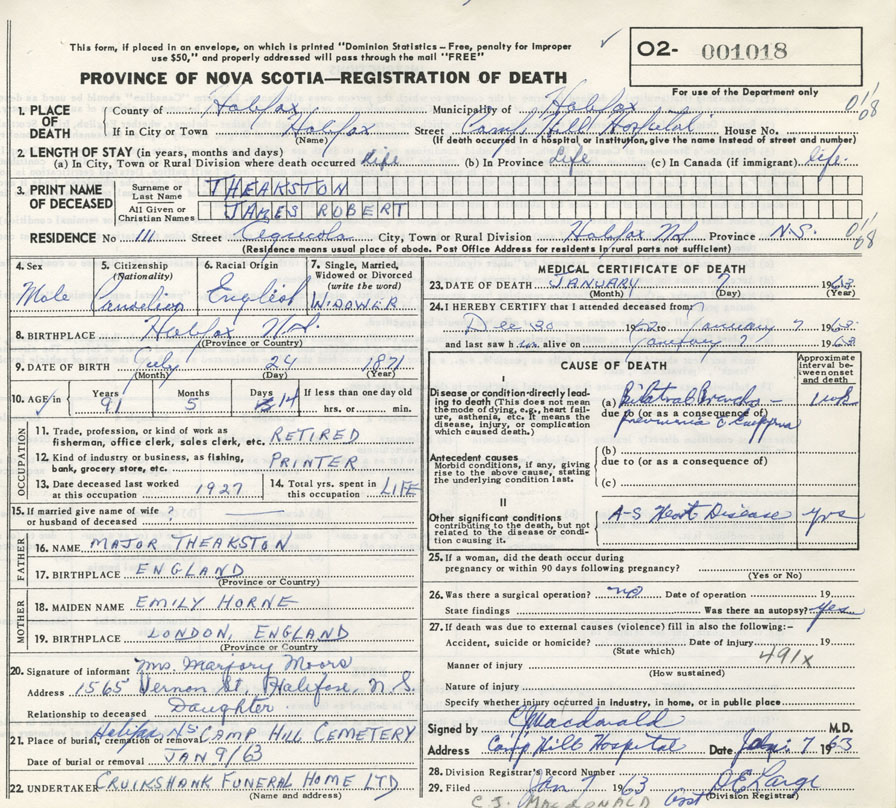 This form, if placed in an envelope, on which is printed "Dominion Statistics - Free, penalty for Improper
use $50," and properly addressed will pass through the mail "FREE"
O2- 001018
PROVINCE OF NOVA SCOTIA—REGISTRATION OF DEATH
For use of the Department only
1. PLACE OF DEATH County of Halifax Municipality of Halifax
If in City or Town Halifax Street Camp Hill Hospital House No.
(Name) (If death occurred in a hospital or institution, give the name instead of street and number)
2. LENGTH OF STAY (in years, months and days)
(a) In City, Town or Rural Division where death occurred life (b) In Province Life (c) In Canada (if immigrant) life.
3. PRINT NAME OF DECEASED Surname or Last Name THEAKSTON
All Given or Christian Names JAMES ROBERT
RESIDENCE No 111 Street City, Town or Rural Division Halifax Province N.S.
(Residence means usual place of abode. Post Office Address for residents in rural parts not sufficient)
4. Sex Male
5. Citizenship (Nationality) Canadian
6. Racial Origin English
7. Single, Married, Widowed or Divorced (write the word) WIDOWER
8. BIRTHPLACE Halifax N.S.
(Province or Country)
9. DATE OF BIRTH July 24 1871
(Month) (Day) (Year)
10. AGE in Years 91 Months 5 Days 14 If less than one day old hrs. or min.
OCCUPATION
11. Trade, profession, or kind of work as
fisherman, office clerk, sales clerk, etc. RETIRED
12. Kind of industry or business, as fishing,
bank, grocery store, etc. PRINTER
13. Date deceased last worked at this occupation 1927
14. Total yrs. spent in this occupation LIFE
15. If married give name of wife ?
or husband of deceased
FATHER
16. NAME MAJOR THEAKSTON
17. BIRTHPLACE ENGLAND
(Province or Country)
MOTHER
18. MAIDEN NAME EMILY HORNE
19. BIRTHPLACE LONDON, ENGLAND
(Province or Country
20. Signature of informant Mrs. Marjory Moors
Address 1565 Vernon St, Halifax, N.S.
Relationship to deceased Daughter
21. Place of burial, cremation or removal Halifax NS CAMP HILL CEMETERY
Date of burial or removal JAN 9/63
22. UNDERTAKER CRUIKSHANK FUNERAL HOME LTD
(Name and address)
MEDICAL CERTIFICATE OF DEATH
23. DATE OF DEATH JANUARY 7 1963
(Month) (Day) (Year)
24. I HEREBY CERTIFY that I attended deceased from
Dec 30 1962 to January 7 1963
and last saw him alive on January 7 1963
CAUSE OF DEATH
Approximate interval between onset and death
I
Disease or condition directly leading to death (This does not mean the mode of dying, e.g., heart failure, asthenia, etc. It means the disease, injury, or complication which caused death.)
(a) Bilateral Broncho- 1 wk
due to (or as a consequence of)
pneumonia
Antecedent causes
Morbid conditions, if any, giving rise to the above cause, stating the underlying condition last.
(b)
due to (or as a consequence of)
(c)
II
Other significant conditions
contributing to the death, but not related to the disease or condition causing it.
A-S Heart Disease yrs
25. If a woman, did the death occur during
pregnancy or within 90 days following pregnancy?
(Yes or No)
26. Was there a surgical operation? no Date of operation 19
State findings Was there an autopsy? yes
27. If death was due to external causes (violence) fill in also the following:-
Accident, suicide or homicide? Date of injury 19
(State which)
491x
Manner of injury
(How sustained)
Nature of injury
Specify whether injury occurred in industry, in home, or in public place
Signed by CJMacdonald M.D.
Address Camp Hill Hospital Date Jan. 7 1963
28. Division Registrar's Record Number
29. Filed Jan 7 1963
(Division Registrar)
C J. MACDONALD